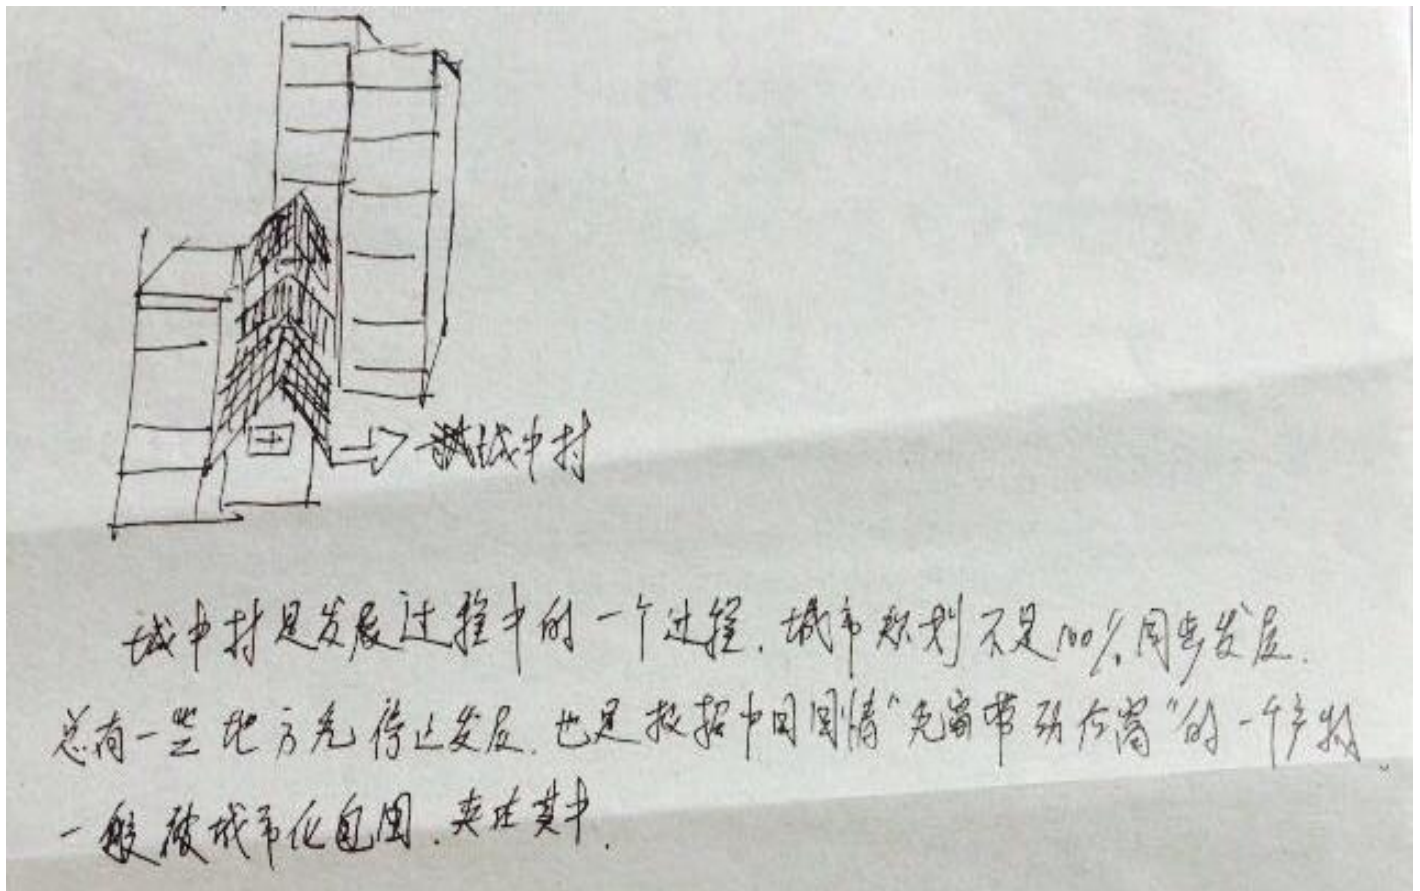 城中村
城中村是发展过程中的一个过程.城市规划不是100%同步发展.
总有一些地方先停止发展.也是根据中国国情“先富带动后富”的一个产物.
一般被城市化包围.夹在其中.